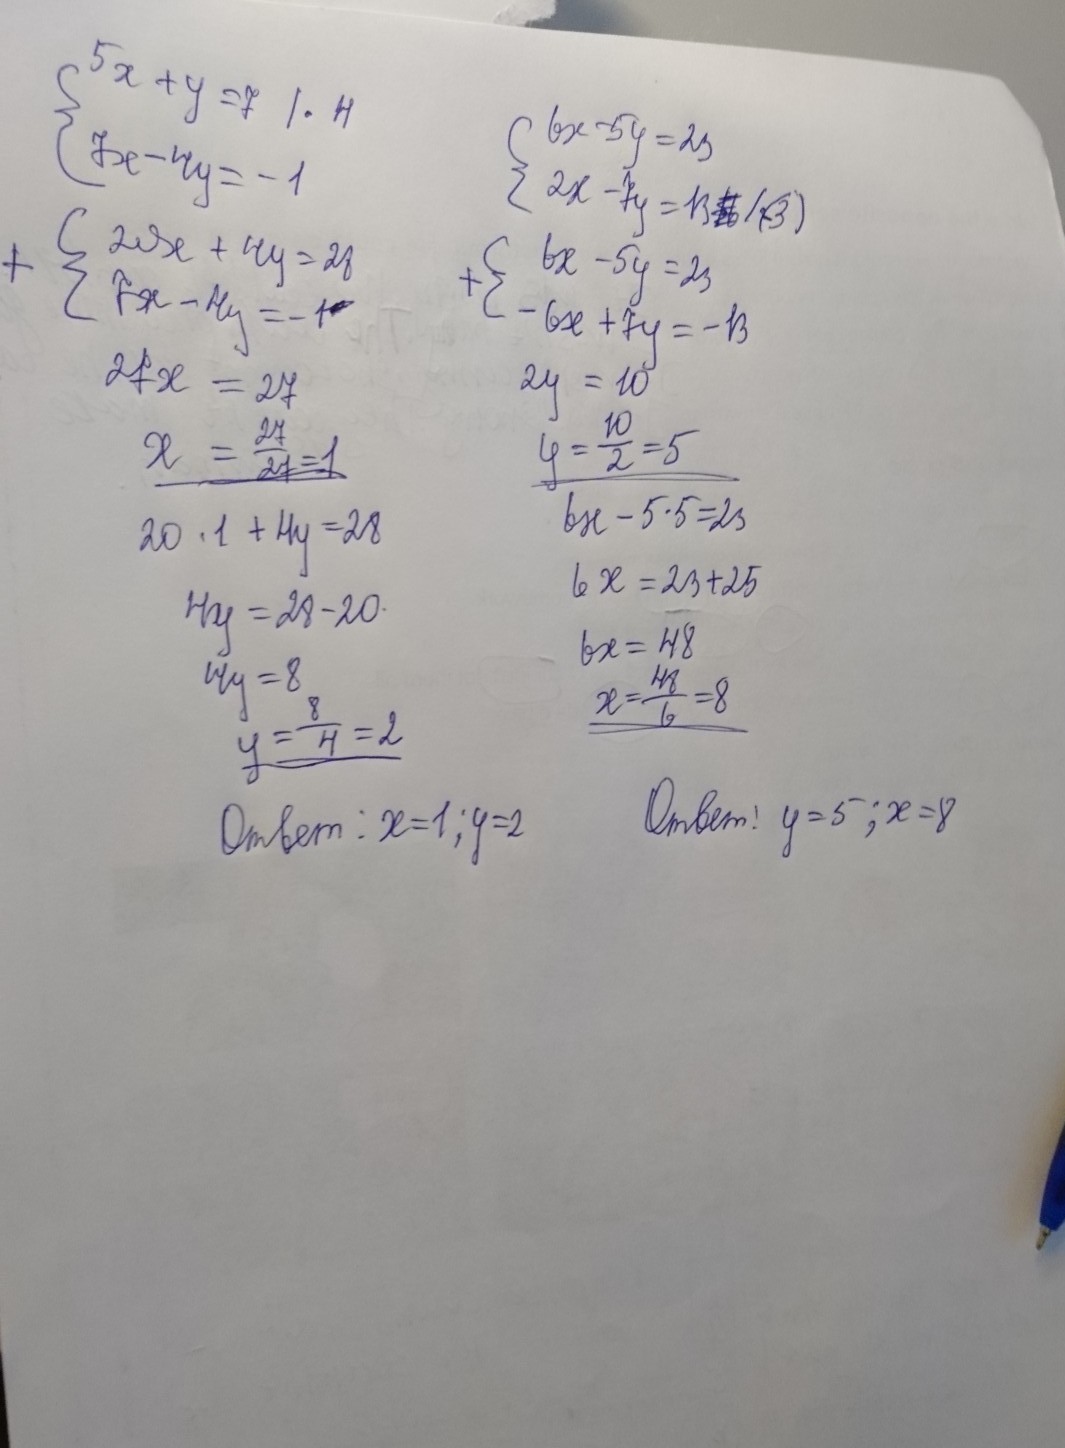 5x + y = 7 | · 4
7x − 4y = −1
+ 20x + 4y = 28
7x − 4y = −1
27x = 27
x = 27/27 = 1
20 · 1 + 4y = 28
4y = 28 − 20
4y = 8
y = 8/4 = 2
Ответ: x = 1; y = 2
6x − 5y = 23
2x − 7y = 13 /(-3)
+ 6x − 5y = 23
− 6x + 7y = −13
2y = 10
y = 10/2 = 5
6x − 5 · 5 = 23
6x = 23 + 25
6x = 48
x = 48/6 = 8
Ответ: y = 5; x = 8